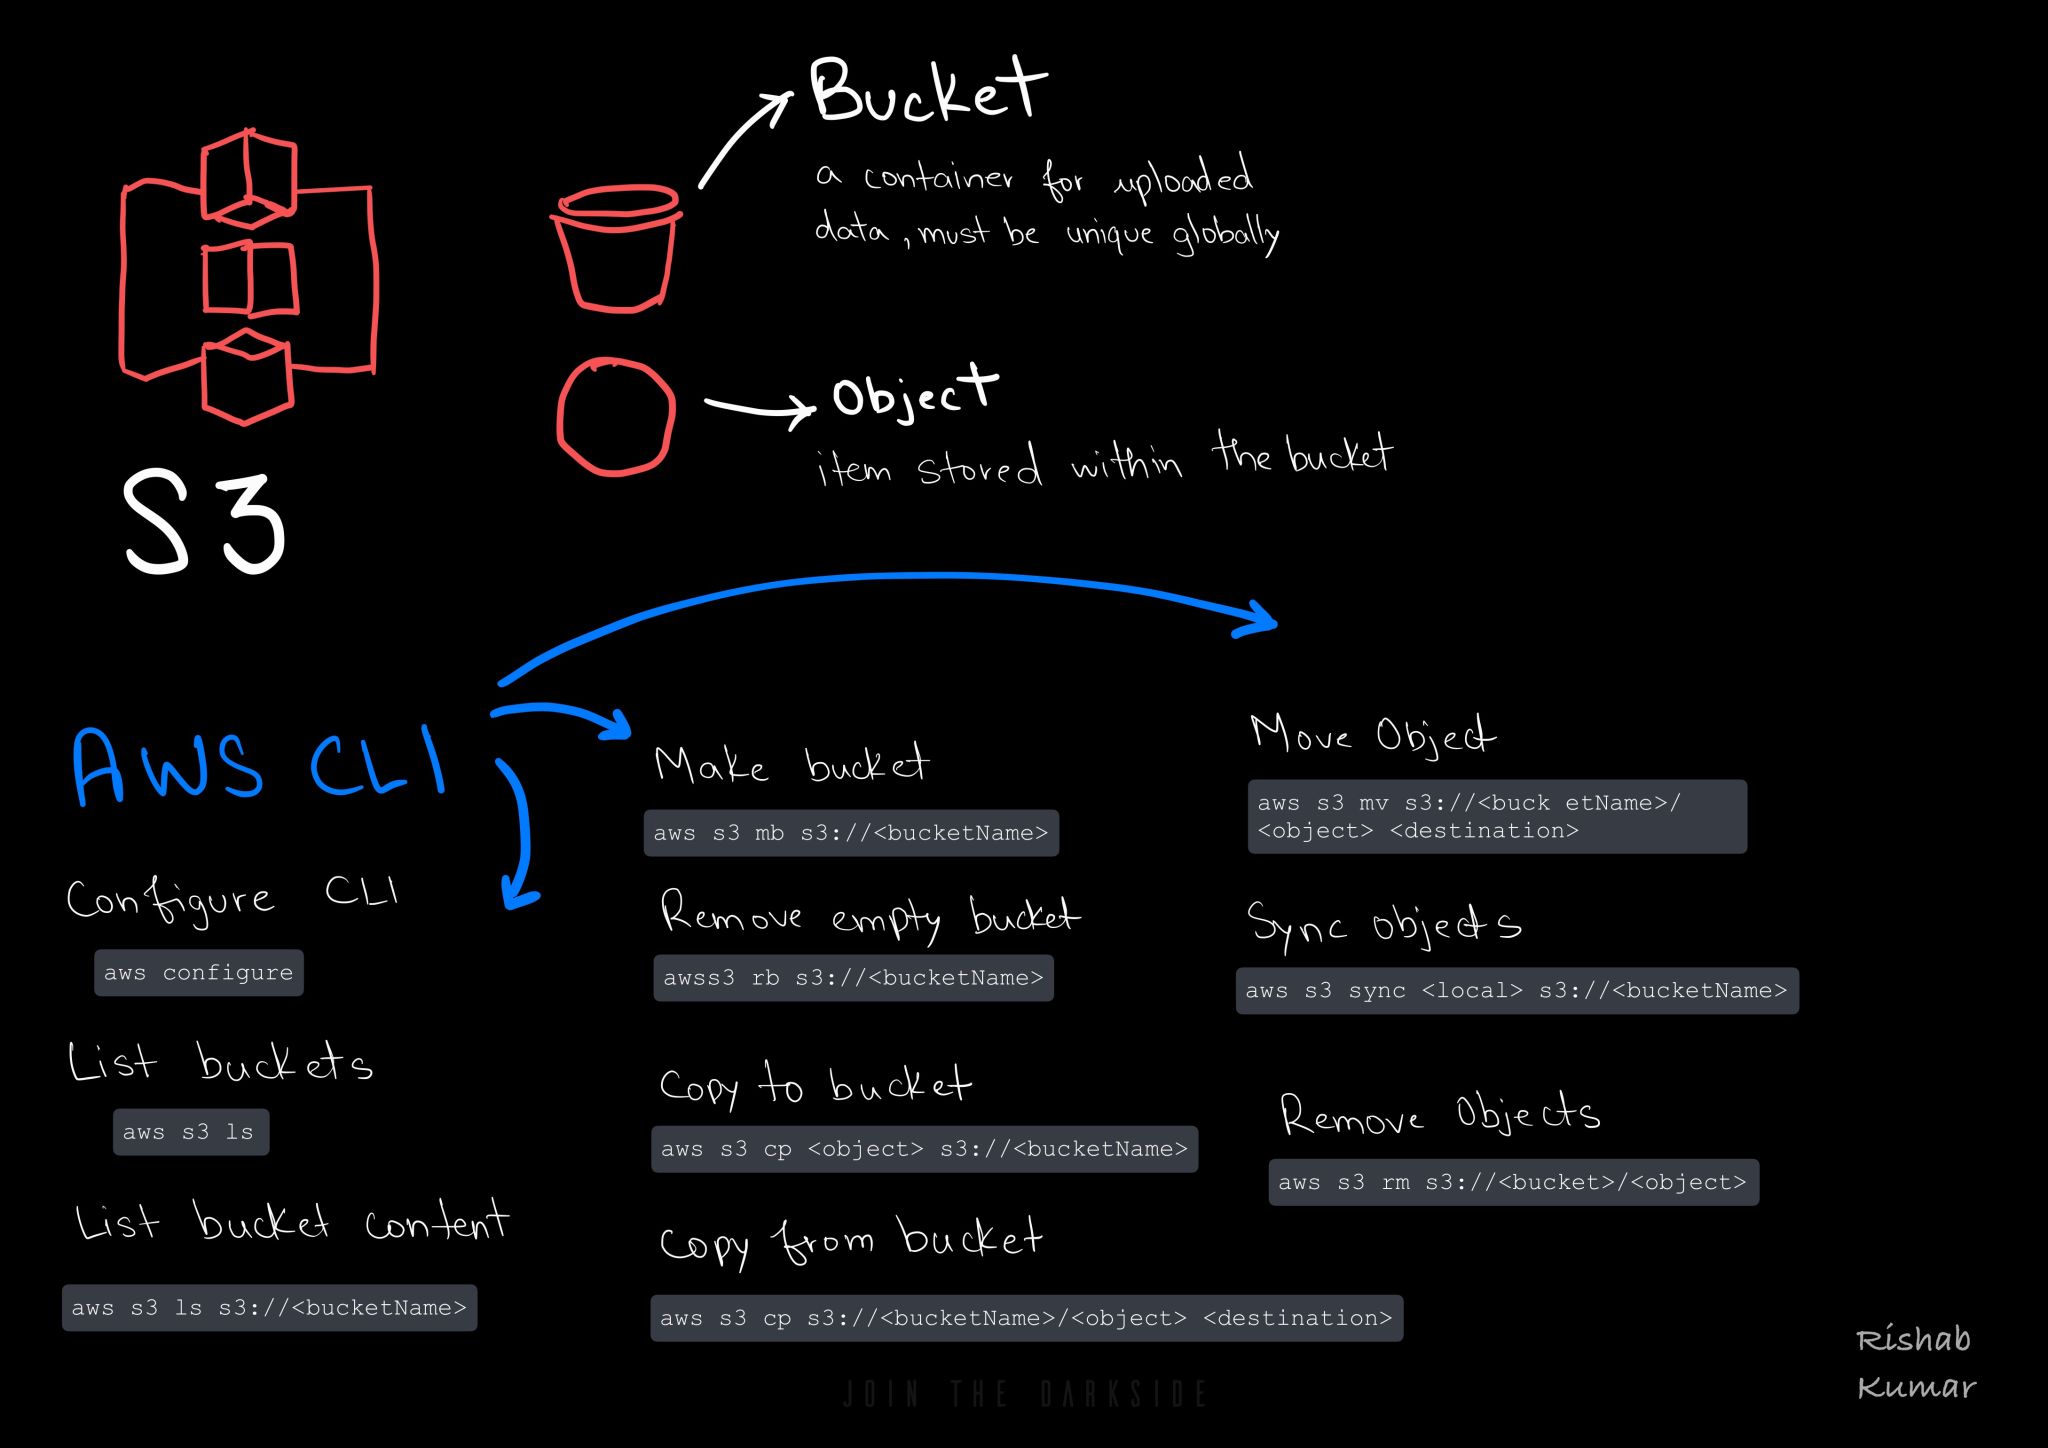 Bucket
a container for uploaded
data, must be unique globally
Object
item stored within the bucket
S3
AWS CLI
Configure CLI
aws configure
List buckets
aws s3 ls
List bucket content
aws s3 ls s3://<bucketName>
Make bucket
aws s3 mb s3://<bucketName>
Remove empty bucket
awss3 rb s3://<bucketName>
Copy to bucket
aws s3 cp <object> s3://<bucketName>
Copy from bucket
aws s3 cp s3://<bucketName>/<object> <destination>
Move Object
aws s3 mv s3://<buck etName>/
<object> <destination>
Sync objects
aws s3 sync <local> s3://<bucketName>
Remove Objects
aws s3 rm s3://<bucket>/<object>
Rishab
Kumar
JOIN THE DARKSIDE